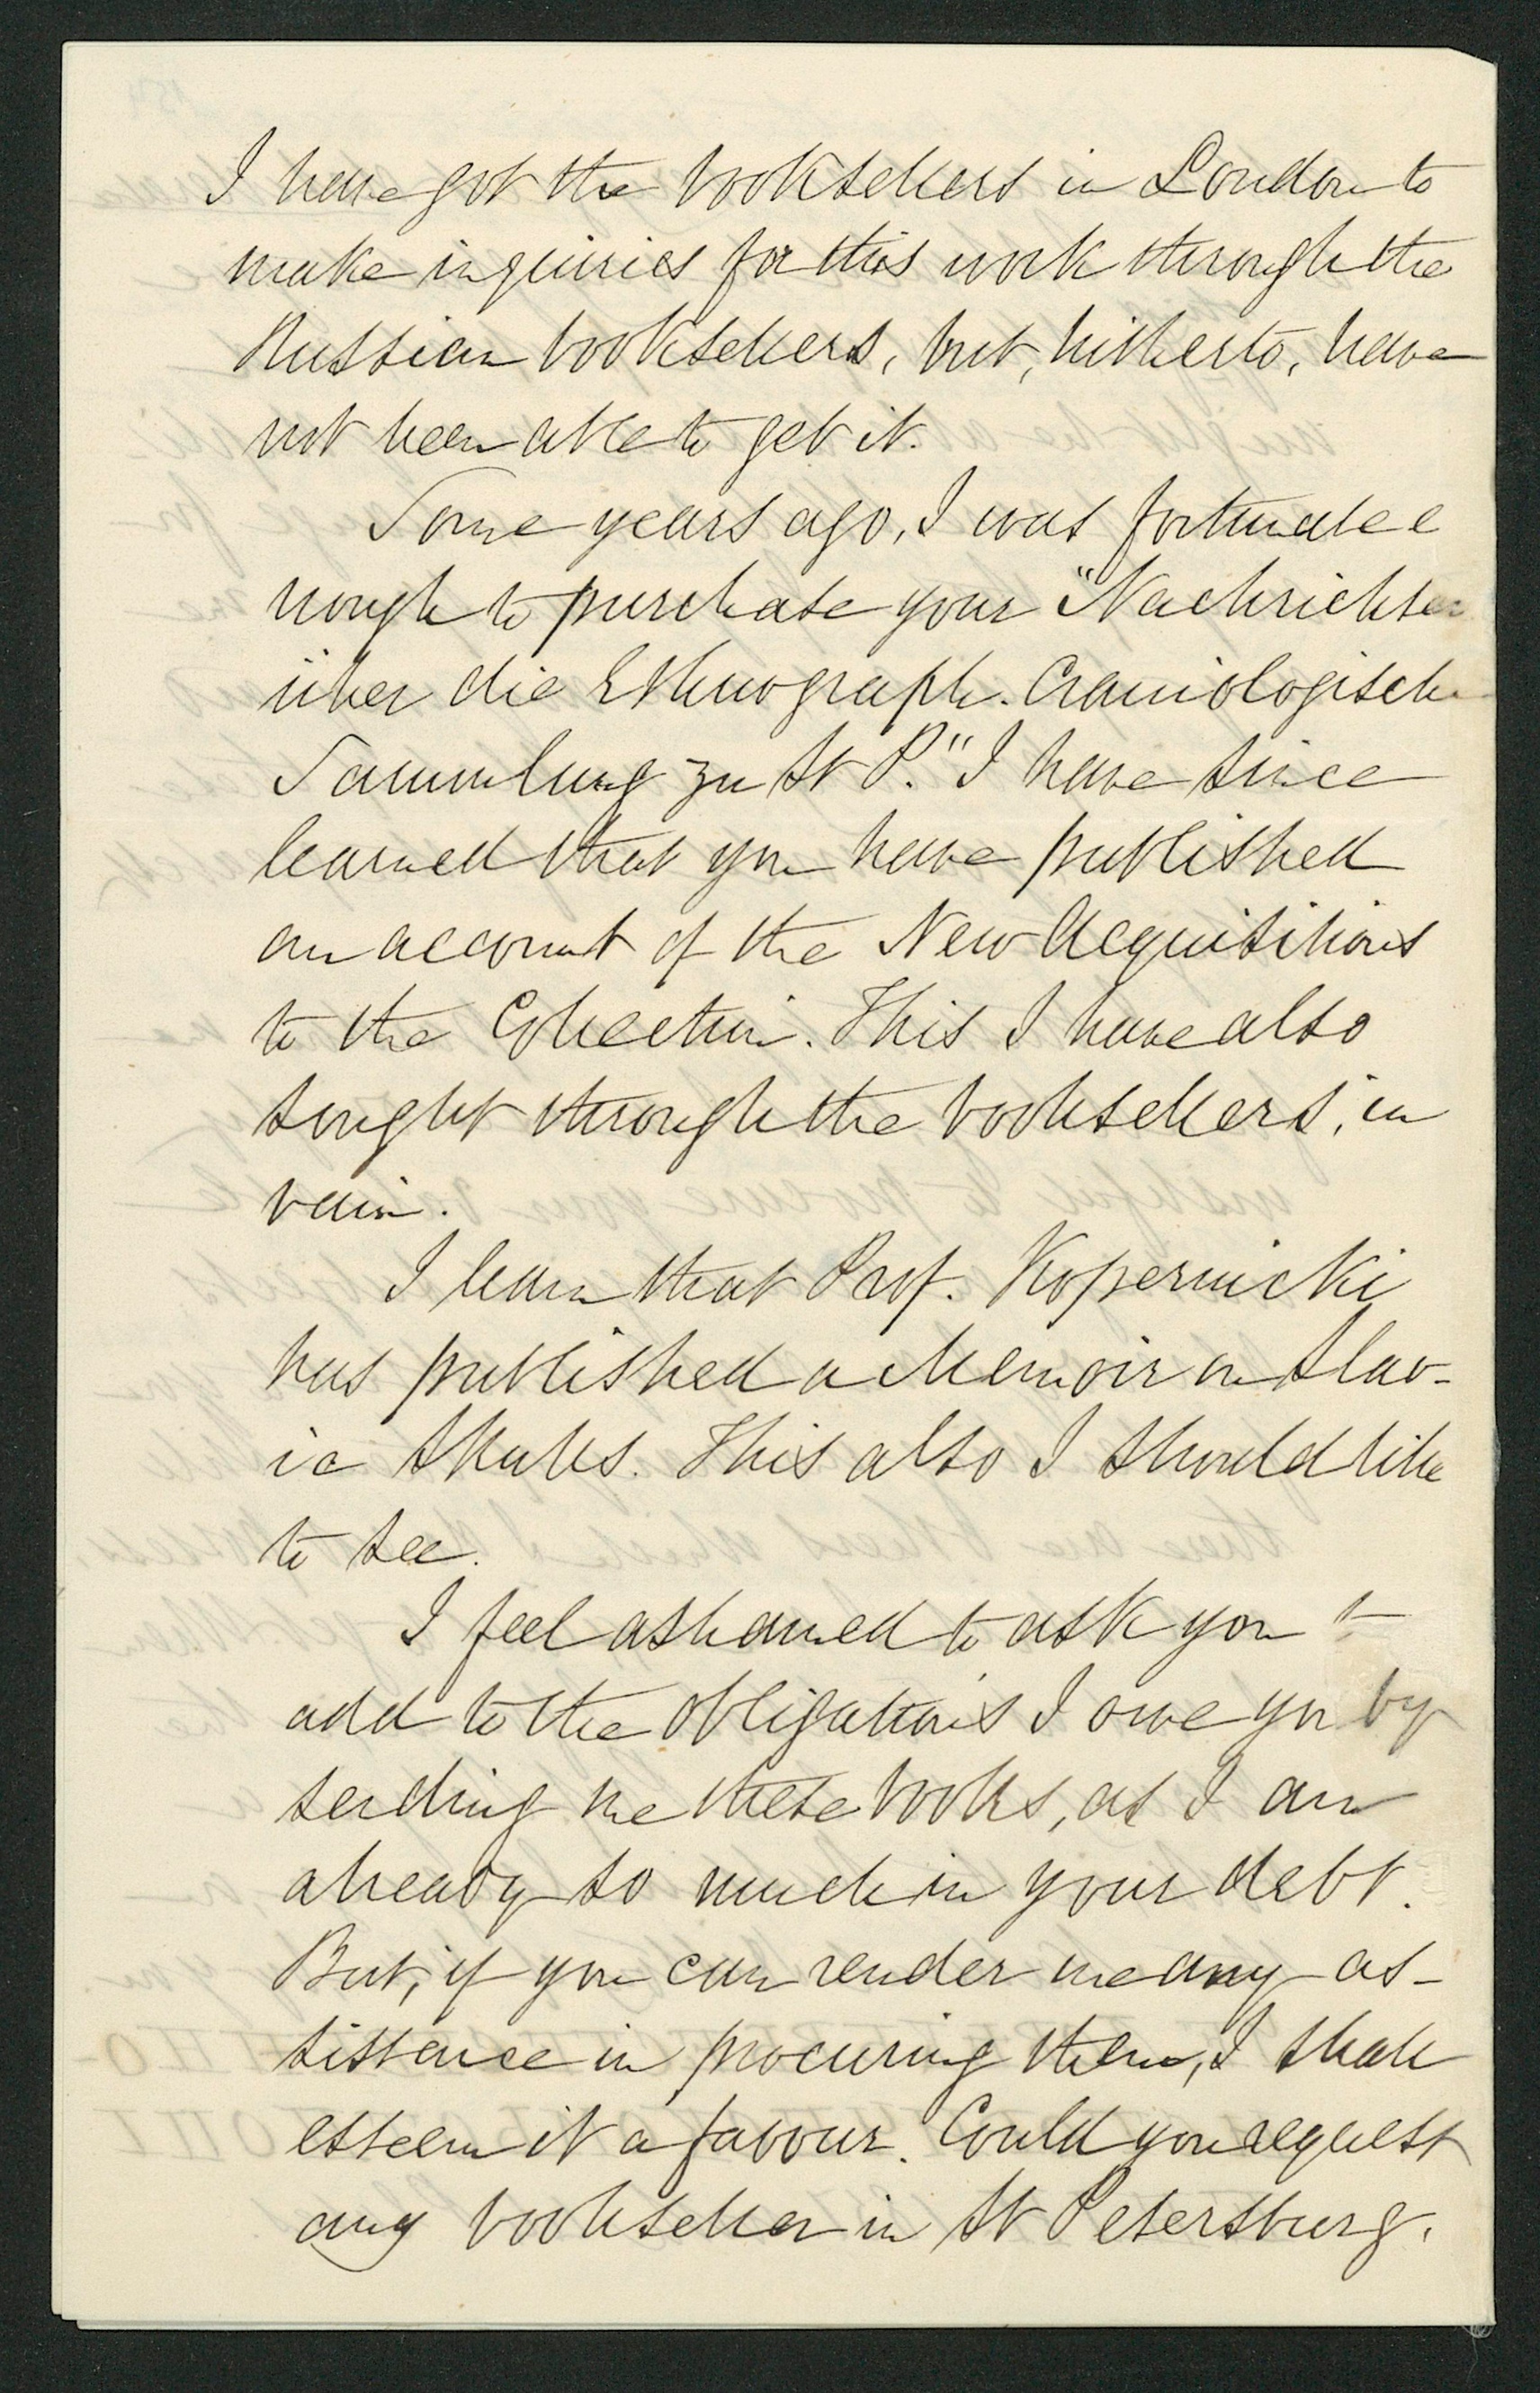 I have got the booksellers in London to
make inquiries for this work through the
Russian booksellers, but, hitherto, have
not been able to get it.
Some years ago, I was fortunate e
nough to purchase your "Nachrichten
über die Ethnograph. Craniologische
Sammlung zu St P." I have since
learned that you have published
an account of the New Acquisitions
to the Collection. This I have also
sought through the booksellers, in
vain.
I learn that Prof. Kopernicki
has published a Memoir on Slav-
ic Skulls. This also I should like
to see.
I feel ashamed to ask you to
add to the obligations I owe you by
sending me these books, as I am
already so much in your debt.
But, if you can render me any as-
sistance in procuring them, I shall
esteem it a favour. Could you request
any bookseller in St Petersburg,